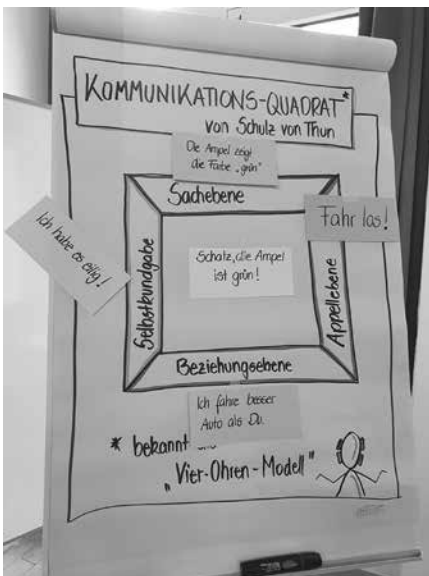 KOMMUNIKATIONS-QUADRAT*
von Schulz von Thun
Die Ampel zeigt
die Farbe „grün"
Sachebene
Ich habe es eilig!
Fahr los!
Selbstkundgabe
Schatz, die Ampel
ist grün!
Appellebene
Beziehungsebene
Ich fahre besser
Auto als Du.
* bekannt
„Vier-Ohren-Modell"